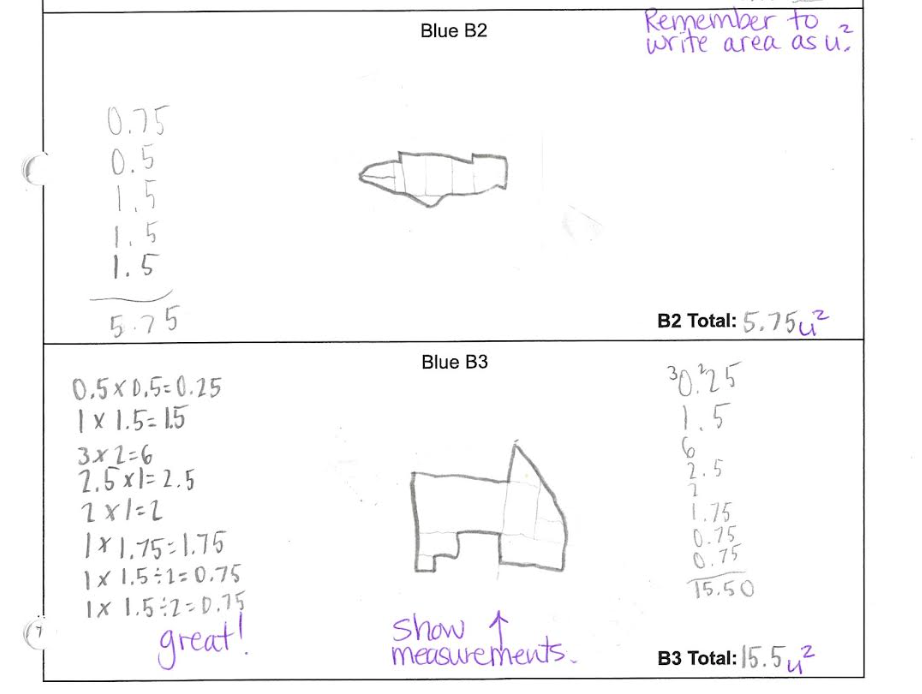 Blue B2
Remember to
write area as u².
0.75
0.5
1.5
1.5
1.5
5.75
B2 Total: 5.75u²
Blue B3
0.5 x 0.5=0.25
1 x 1.5=1.5
3x2=6
2.5x1=2.5
2x1=2
1x1.75=1.75
1x 1.5÷2=0.75
1x 1.5÷2=0.75
great!
Show
measurements.
³0.²25
1.5
6
2.5
2
1.75
0.75
0.75
15.50
B3 Total: 15.5u²